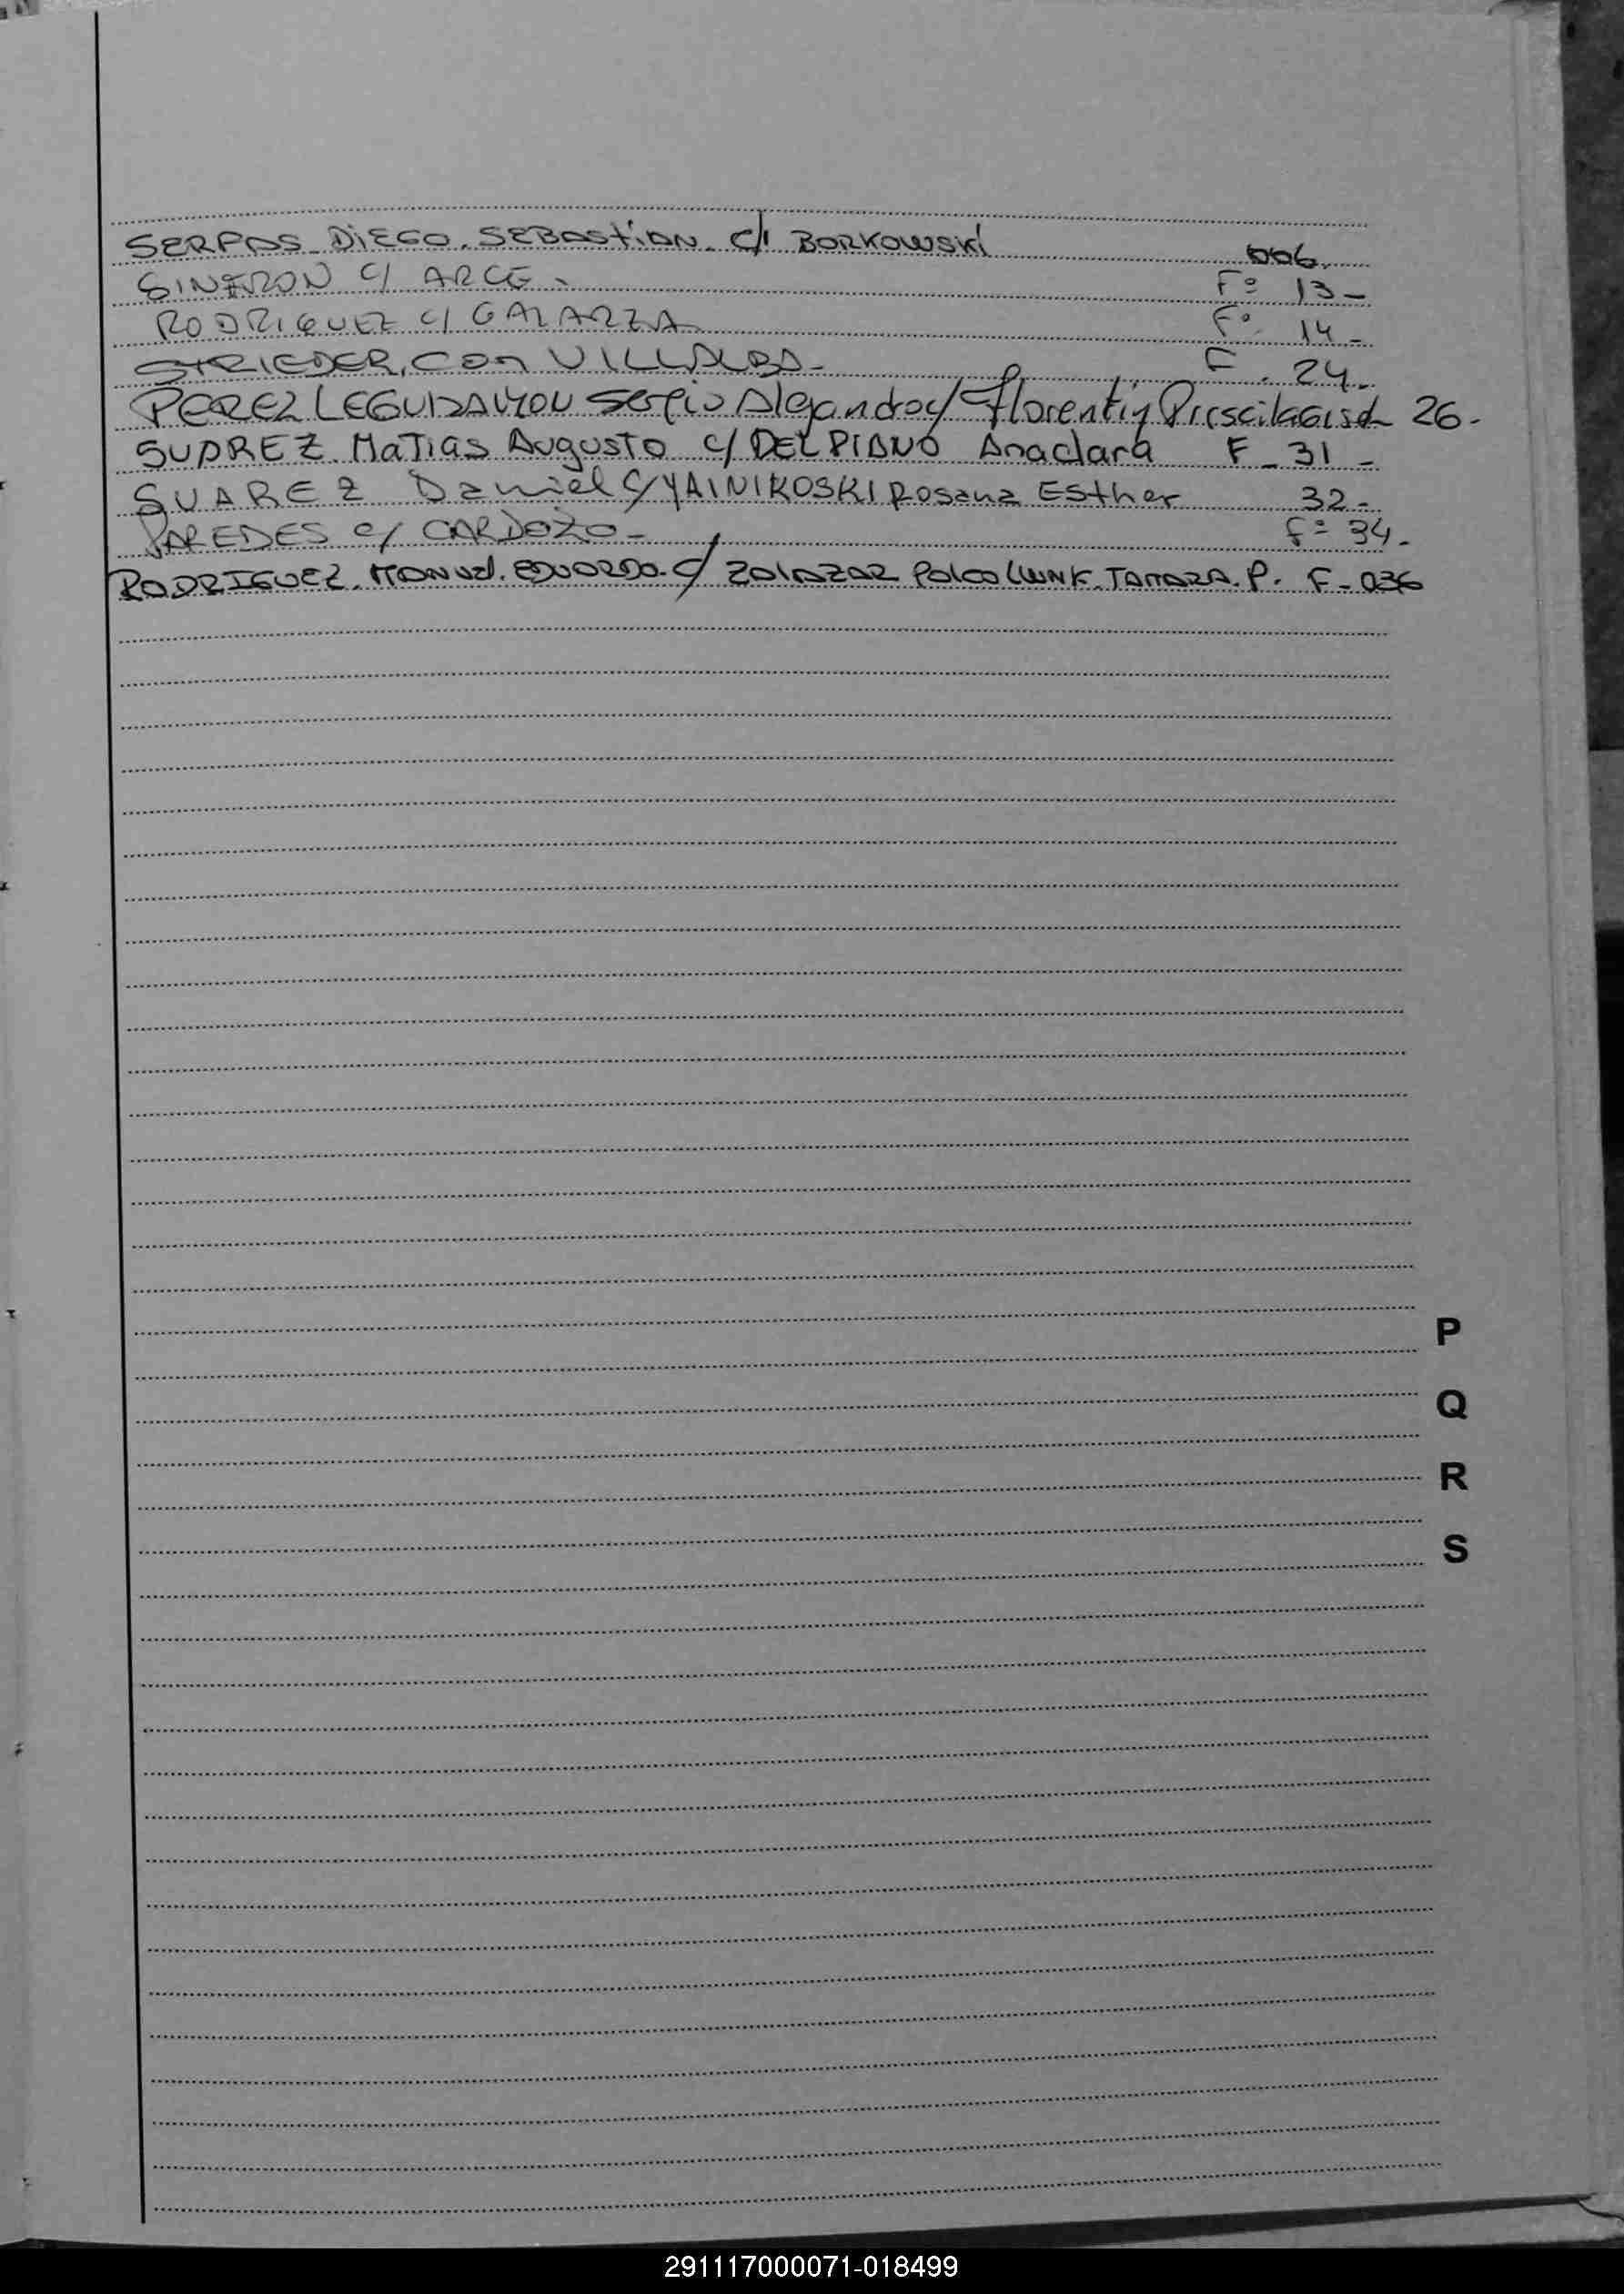 SERPAS DIEGO. SEBASTIAN. C/ BORKOWSKI 006.
SINFRON C/ ARCE - Fº 13 -
RODRIGUEZ C/ GALARZA Fº 14 -
STRIEDER, CON VILLALBA - F. 24 -
PEREZ Sergio Alejandro c/ Florentin 26 -
SUAREZ Matias Augusto c/ DELPIANO Anaclara F - 31 -
SUAREZ Daniel c/ YAINIKOSKI Rosana Esther 32 -
PAREDES c/ CARDOZO - fº 34 -
RODRIGUEZ. MANUEL. EDUARDO. C/ ZALAZAR TAMARA. P. F - 036
P
Q
R
S
291117000071-018499